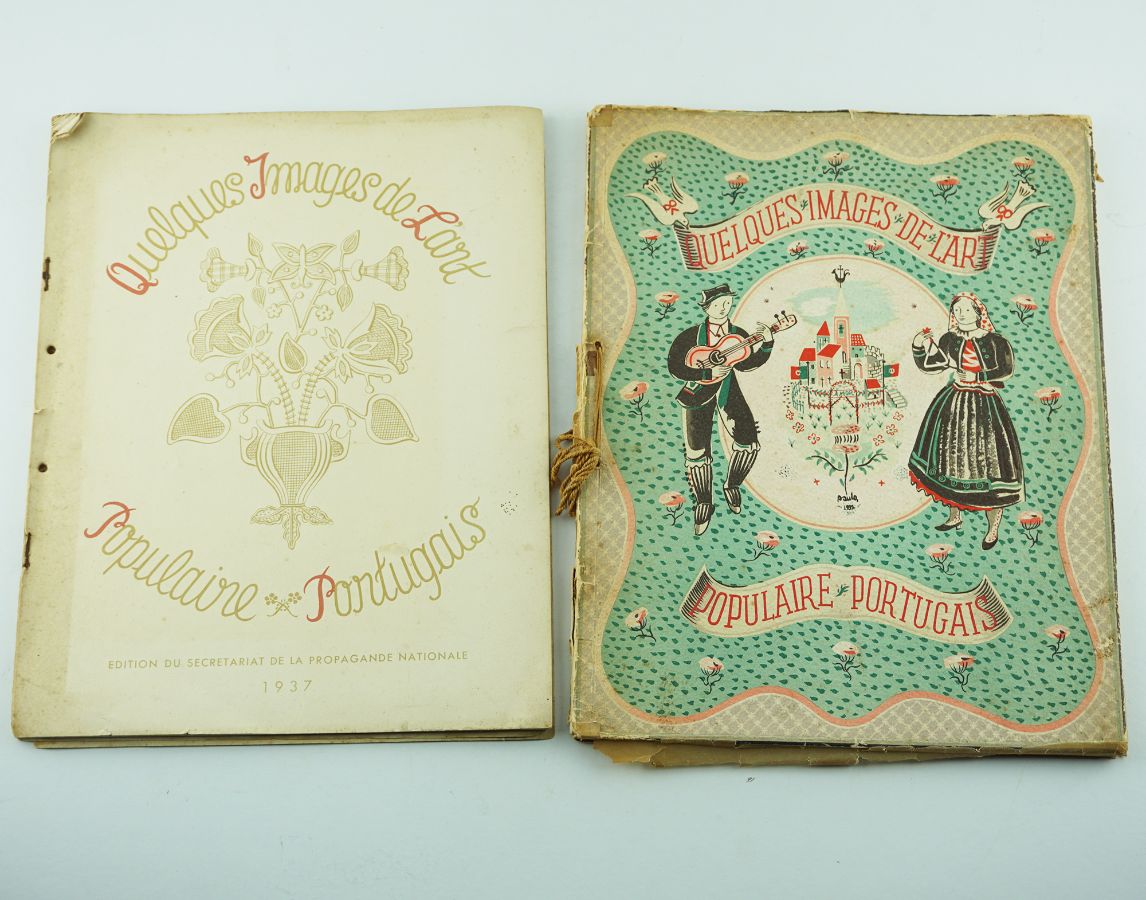 Quelques Images de L'art
Populaire Portugais
EDITION DU SECRETARIAT DE LA PROPAGANDE NATIONALE
1937
QUELQUES·IMAGES·DE·L'ART
POPULAIRE PORTUGAIS